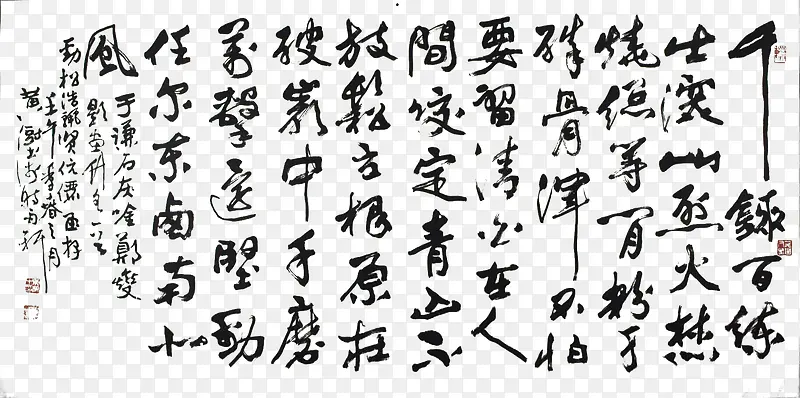 千錘百練
出深山烈火焚
燒總等閒粉身
碎骨渾不怕
要留清白在人
間咬定青山不
放鬆立根原在
破巖中千磨
萬擊還堅勁
任爾東西南北
風
于謙石灰吟鄭燮
題畫竹
勁松浩珮賢伉儷
壬午季春之月
黃